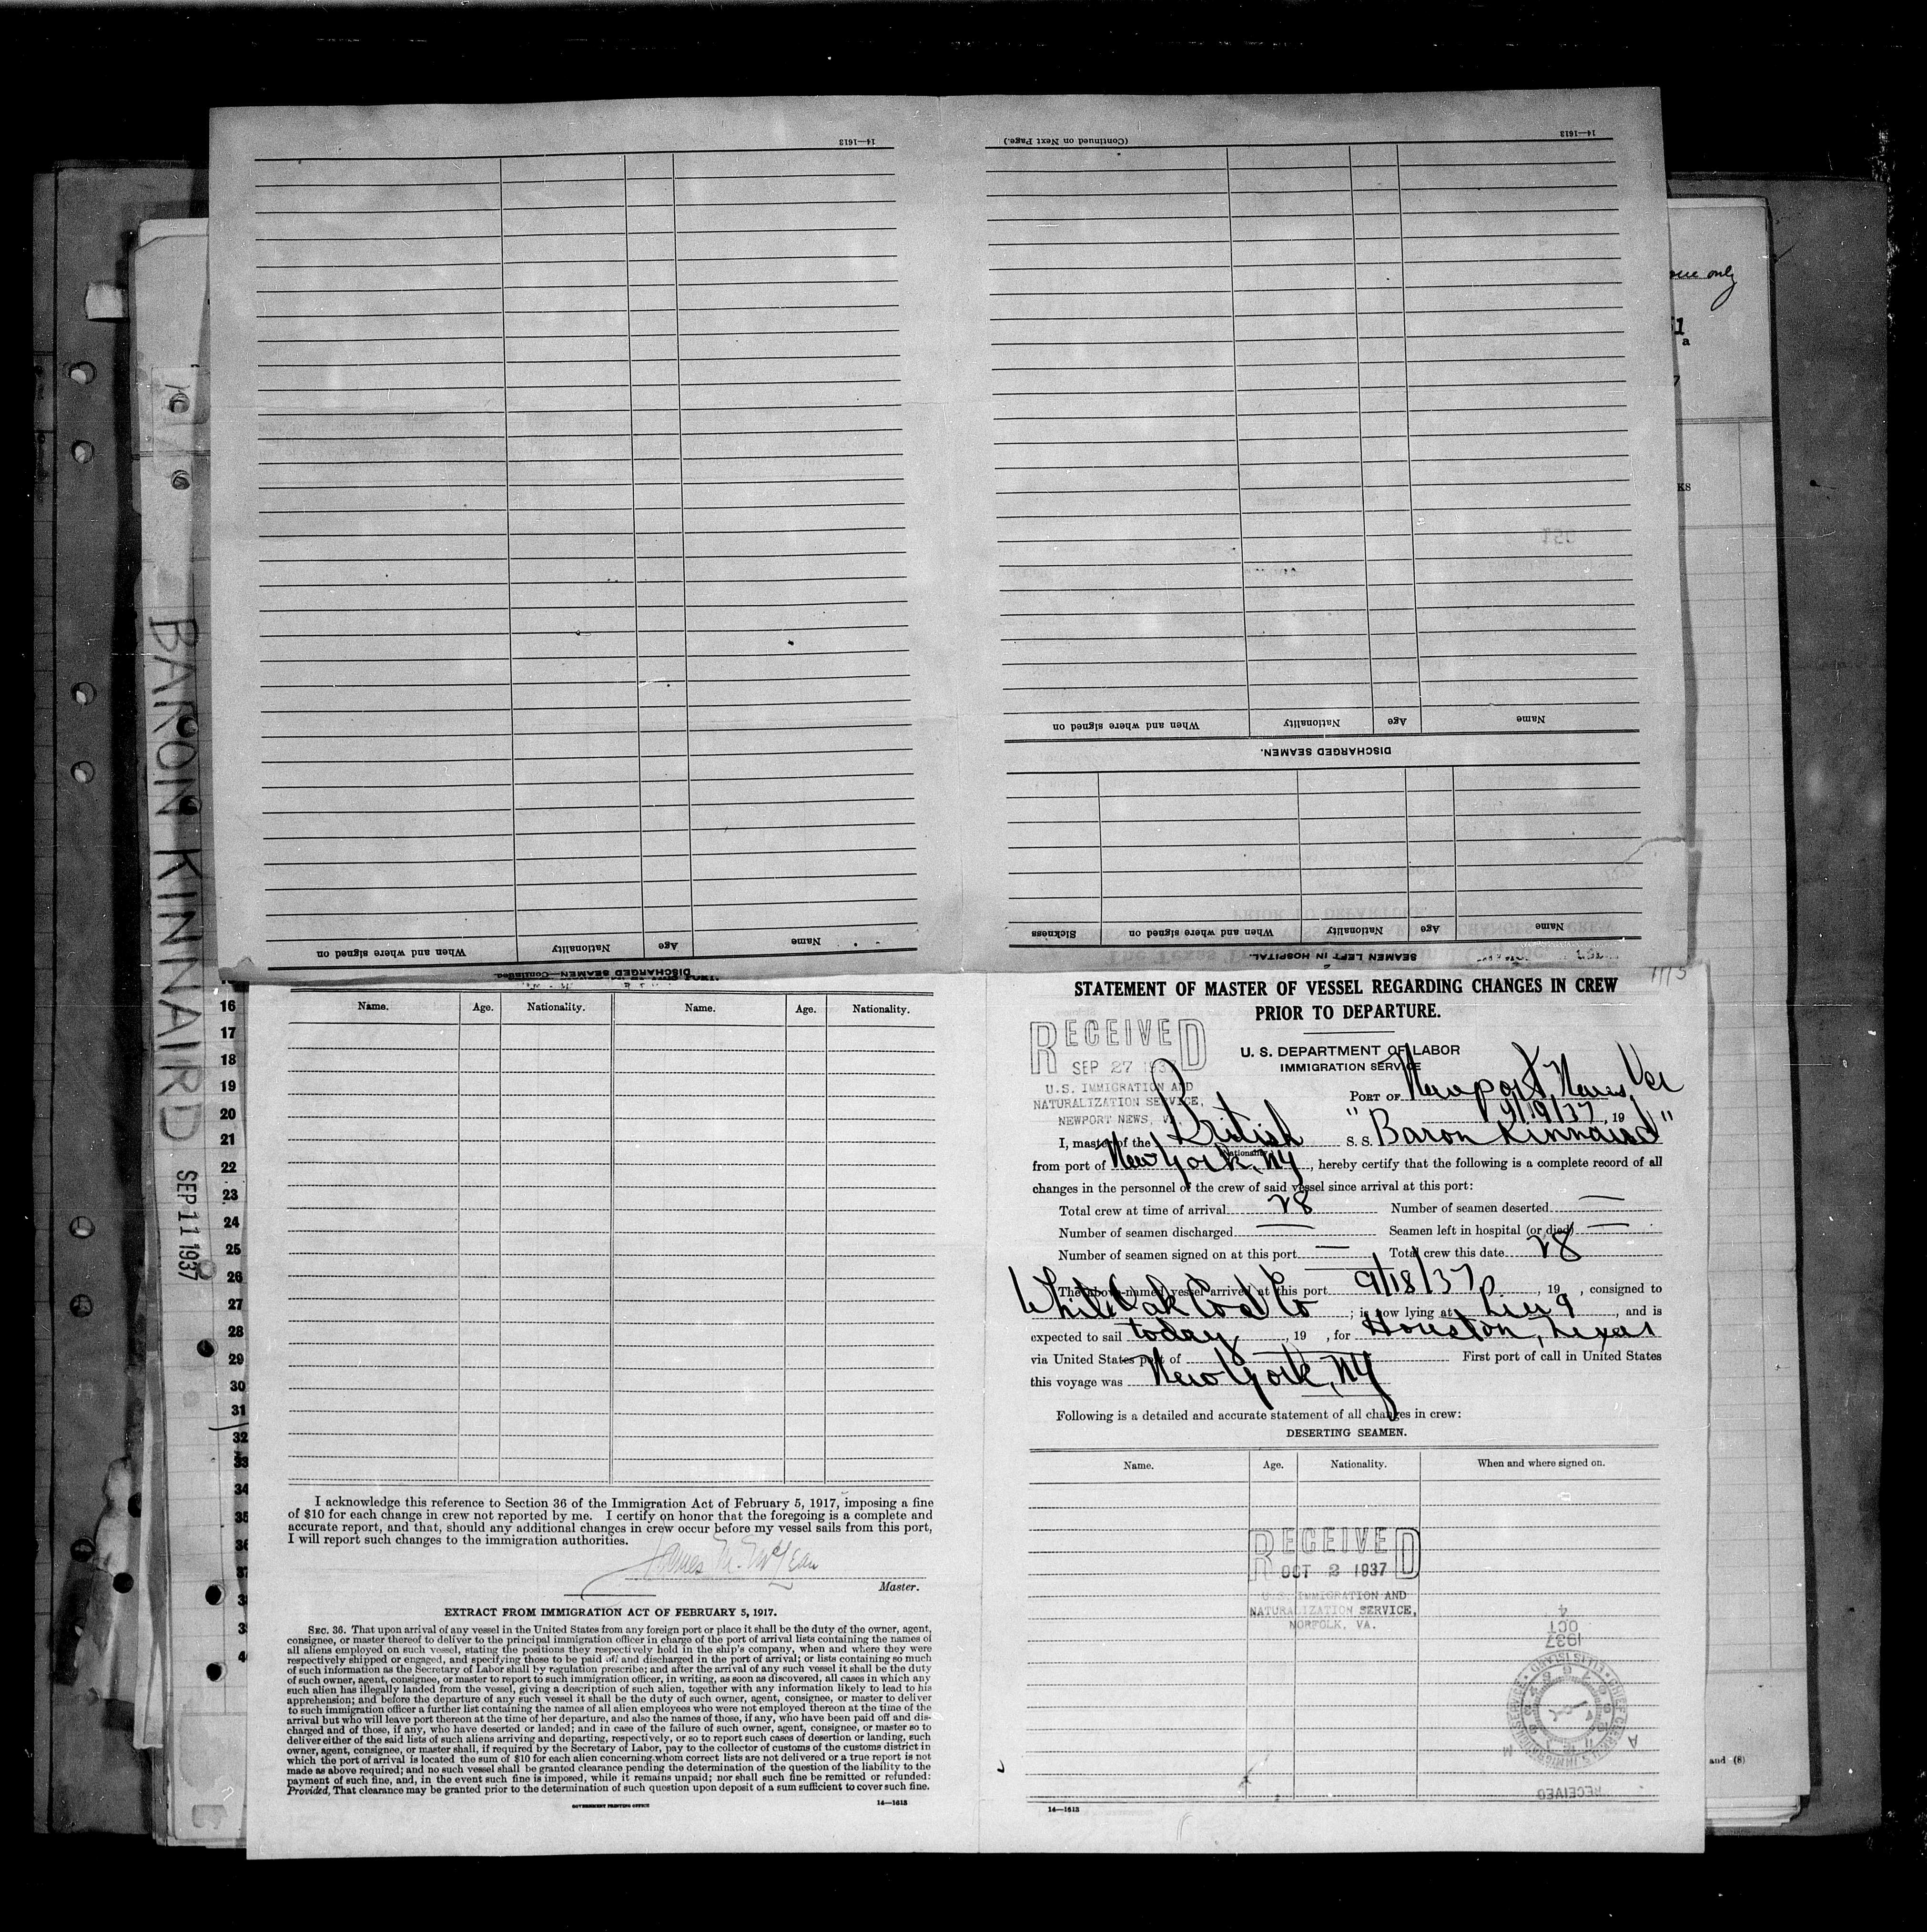 14—1613
(Continued on Next Page.)
14—1613
Name
Age
Nationality
When and where signed on
DISCHARGED SEAMEN.
Name
Age
Nationality
When and where signed on
Sickness
SEAMEN LEFT IN HOSPITAL.
Name
Age
Nationality
When and where signed on
DISCHARGED SEAMEN—Continued.
only
a
7
KS
and (8)
BARON KINNAIRD
SEP 11 1937
16
17
18
19
20
21
22
23
24
25
26
27
28
29
30
31
32
33
34
35
Name.
Age.
Nationality.
Name.
Age.
Nationality.
I acknowledge this reference to Section 36 of the Immigration Act of February 5, 1917, imposing a fine
of $10 for each change in crew not reported by me. I certify on honor that the foregoing is a complete and
accurate report, and that, should any additional changes in crew occur before my vessel sails from this port,
I will report such changes to the immigration authorities.
James M. McLean
Master.
EXTRACT FROM IMMIGRATION ACT OF FEBRUARY 5, 1917.
SEC. 36. That upon arrival of any vessel in the United States from any foreign port or place it shall be the duty of the owner, agent,
consignee, or master thereof to deliver to the principal immigration officer in charge of the port of arrival lists containing the names of
all aliens employed on such vessel, stating the positions they respectively hold in the ship's company, when and where they were
respectively shipped or engaged, and specifying those to be paid off and discharged in the port of arrival; or lists containing so much
of such information as the Secretary of Labor shall by regulation prescribe; and after the arrival of any such vessel it shall be the duty
of such owner, agent, consignee, or master to report to such immigration officer, in writing, as soon as discovered, all cases in which any
such alien has illegally landed from the vessel, giving a description of such alien, together with any information likely to lead to his
apprehension; and before the departure of any such vessel it shall be the duty of such owner, agent, consignee, or master to deliver
to such immigration officer a further list containing the names of all alien employees who were not employed thereon at the time of the
arrival but who will leave port thereon at the time of her departure, and also the names of those, if any, who have been paid off and dis-
charged and of those, if any, who have deserted or landed; and in case of the failure of such owner, agent, consignee, or master so to
deliver either of the said lists of such aliens arriving and departing, respectively, or so to report such cases of desertion or landing, such
owner, agent, consignee, or master shall, if required by the Secretary of Labor, pay to the collector of customs of the customs district in
which the port of arrival is located the sum of $10 for each alien concerning whom correct lists are not delivered or a true report is not
made as above required; and no such vessel shall be granted clearance pending the determination of the question of the liability to the
payment of such fine, and, in the event such fine is imposed, while it remains unpaid; nor shall such fine be remitted or refunded:
Provided, That clearance may be granted prior to the determination of such question upon deposit of a sum sufficient to cover such fine.
GOVERNMENT PRINTING OFFICE
14—1613
STATEMENT OF MASTER OF VESSEL REGARDING CHANGES IN CREW
PRIOR TO DEPARTURE.
RECEIVED
SEP 27 1937
U.S. IMMIGRATION AND
NATURALIZATION SERVICE,
NEWPORT NEWS, VA.
U. S. DEPARTMENT OF LABOR
IMMIGRATION SERVICE
PORT OF Newport News, Va
9/19/37, 19
I, master of the British S. S. "Baron Kinnaird"
Nationality
from port of New York, NY, hereby certify that the following is a complete record of all
changes in the personnel of the crew of said vessel since arrival at this port:
Total crew at time of arrival 28 Number of seamen deserted —
Number of seamen discharged — Seamen left in hospital (or died) —
Number of seamen signed on at this port — Total crew this date 28
The above-named vessel arrived at this port 9/18/37, 19 , consigned to
White Oak Coal Co; is now lying at Pier 9, and is
expected to sail today, 19 , for Houston, Texas
via United States port of — First port of call in United States
this voyage was New York, NY
Following is a detailed and accurate statement of all changes in crew:
DESERTING SEAMEN.
Name.
Age.
Nationality.
When and where signed on.
RECEIVED
OCT 2 1937
U.S. IMMIGRATION AND
NATURALIZATION SERVICE,
NORFOLK, VA.
1937
OCT
4
RECEIVED
14—1613